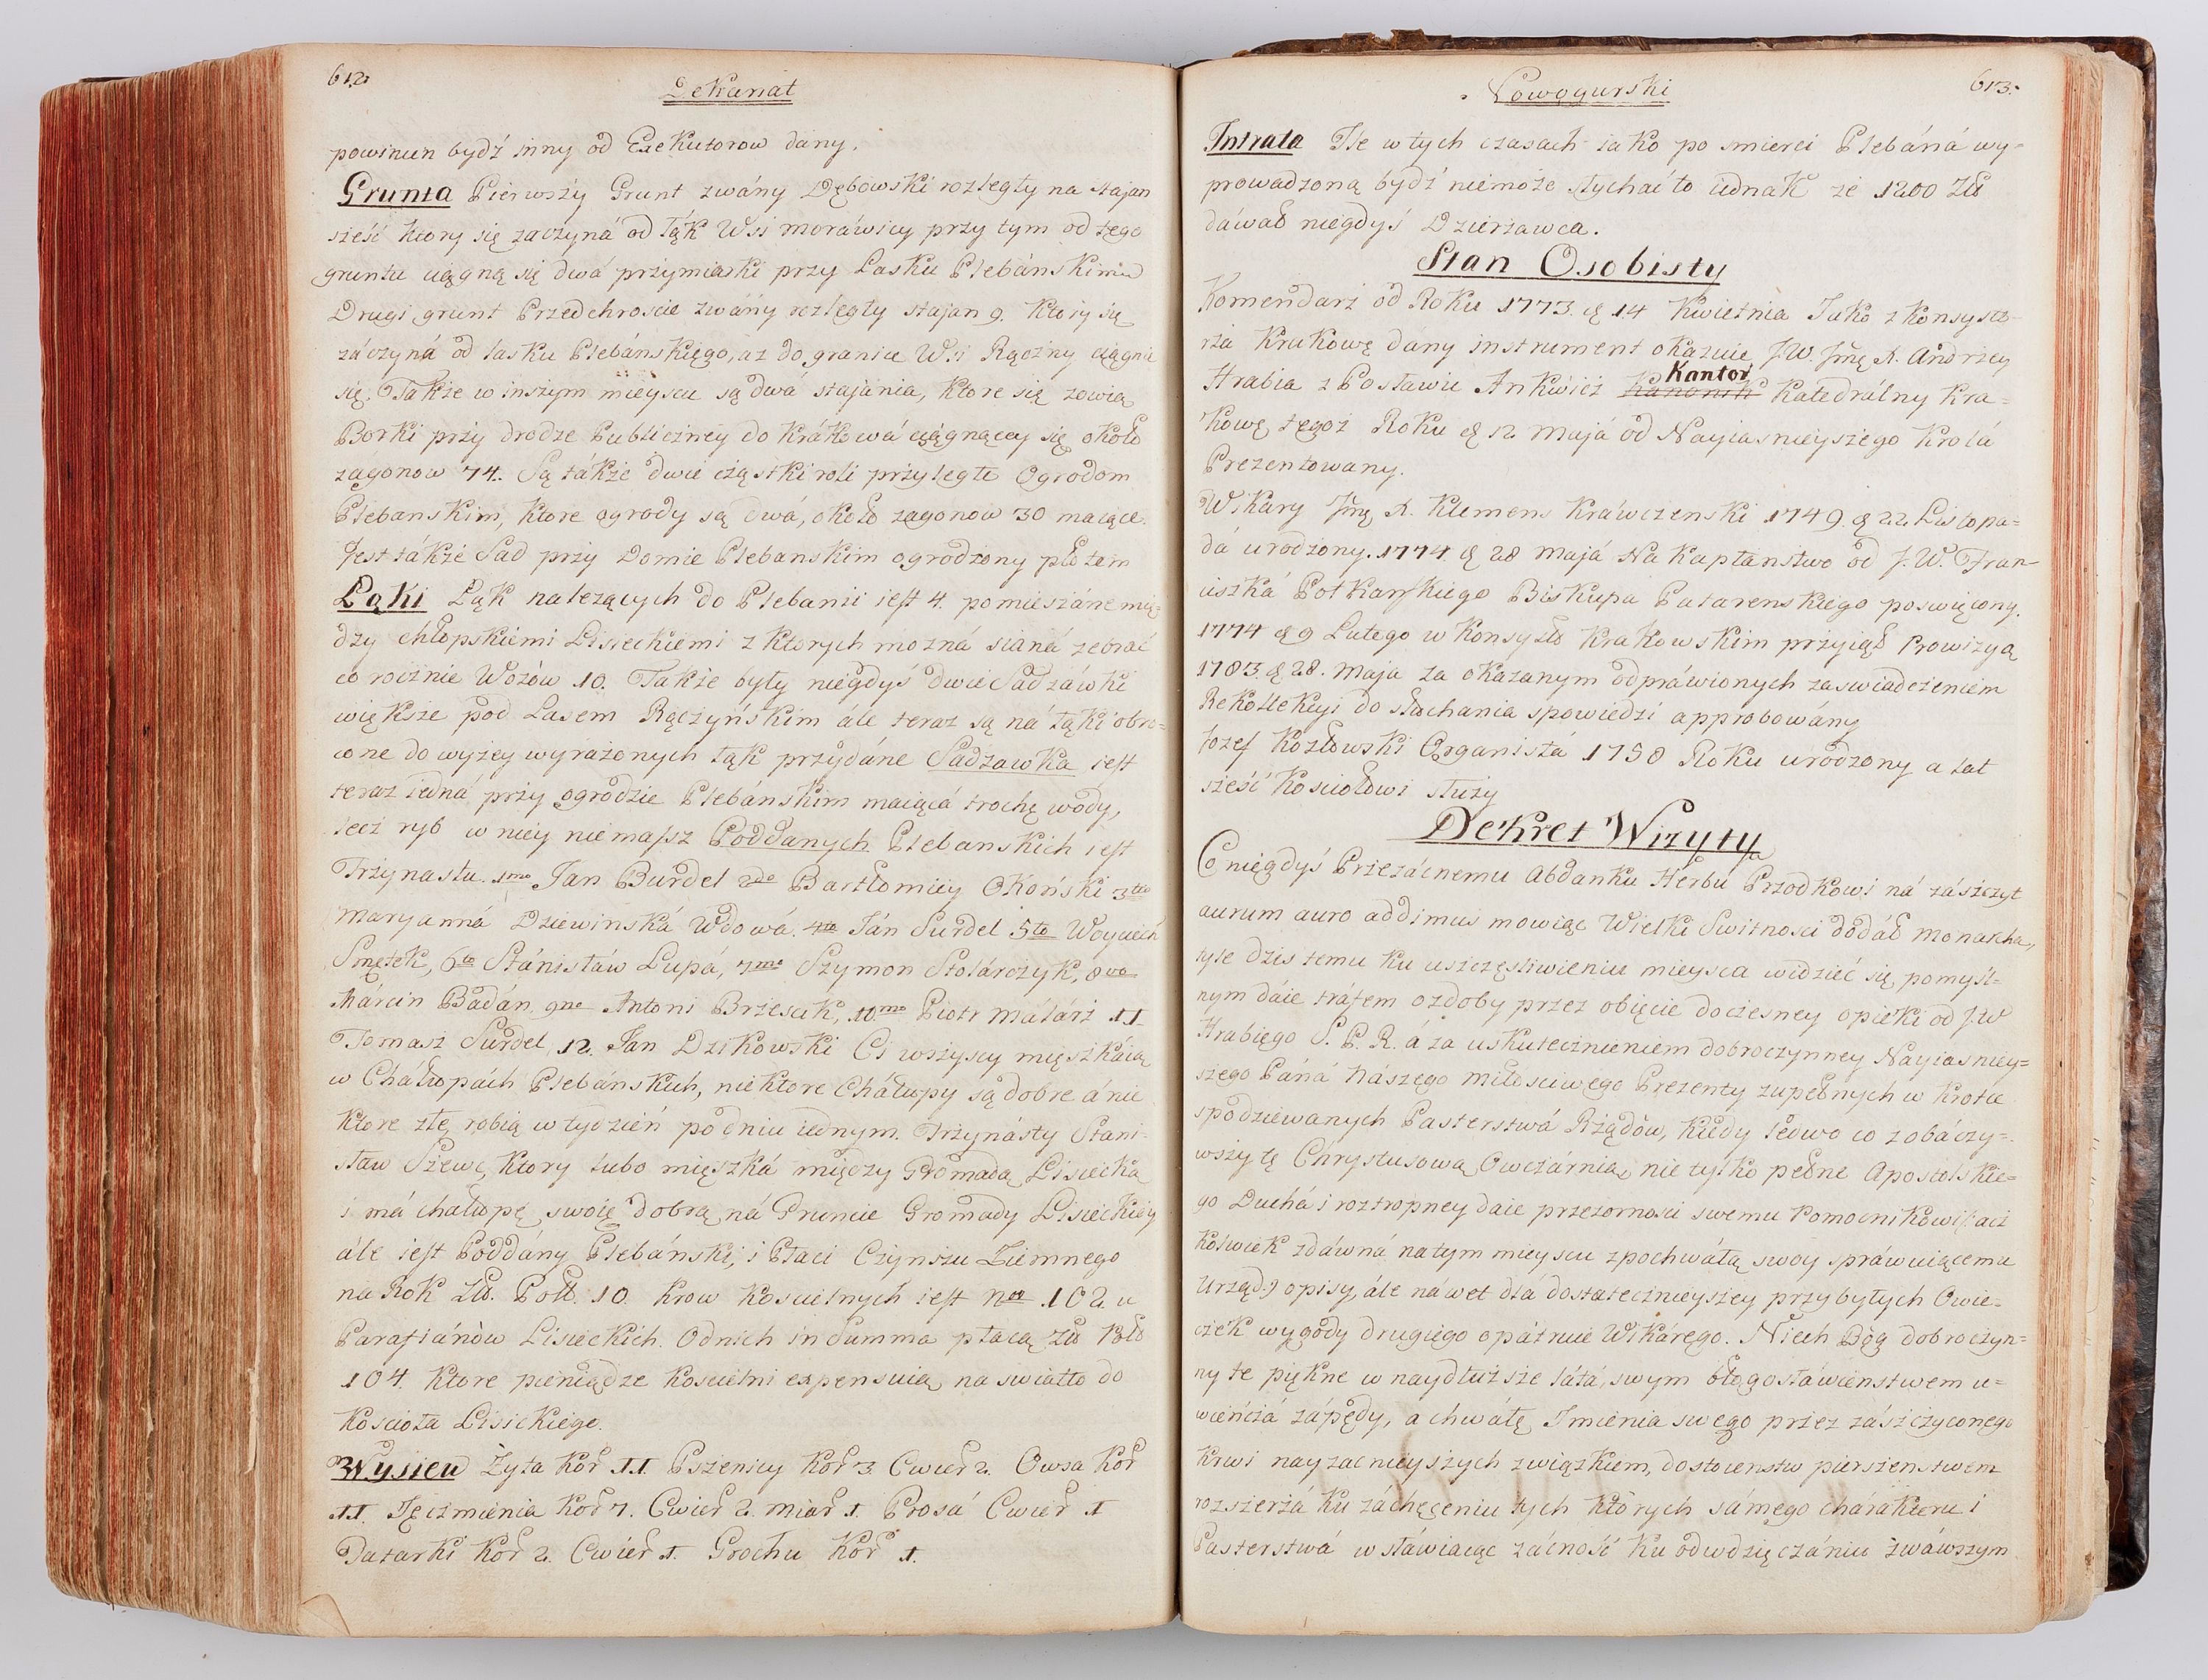 612.
Dekanat
powinien bydź inny od Exekutorow dany.
Grunta Pierwszy Grunt zwány Dębowski rozległy na stajan
sześć ktory się zaczyná od łąk Wsi moráwicy przy tym od tego
gruntu ciągną się dwá przymiarki przy Lasku Plebáńskim
Drugi grunt Przedchroscie zwány rozległy stajan 9. ktory się
záczyná od lasku Plebáńskięgo, az do granic Wsi Rączny ciągnie
się. Także w inszym mieyscu są dwá stajania, ktore się zowią
Borki przy drodze Publiczney do Krákowá ciągnącey się około
zágonow 74. Są tákże dwie cząstki roli przyległe Ogrodom
Plebanskim, ktore ogrody są dwá, około zagonow 30 maiące.
Jest tákże Sad przy Domie Plebanskim ogrodzony płotem
Łąki Łąk nalezących do Plebanii iest 4. pomieszáne mię=
dzy chłopskiemi Lisieckiemi z ktorych mozná sianá zebrać
co rocznie Wozów 10. Także były niegdyś dwie Sadzáwki
większe pod Lasem Rączyńskim ále teraz są ná łąki obro=
cone do wyżey wyrażonych łąk przydáne Sadzawka iest
teraz iedná przy ogrodzie Plebáńskim maiącá trochę wody,
lecz ryb w niey niemasz Poddanych Plebanskich iest
Trzynastu. 1mo Jan Burdel 2do Bartłomiey Okoński 3tio
Maryanná Dziewińská Wdowá. 4to Ján Surdel 5to Woyciech
Smętek, 6to Stánisław Lupá, 7mo Szymon Stolárczyk, 8vo
Márcin Badán. 9no Antoni Brzesak, 10mo Piotr Málárz 11.
Tomasz Surdel, 12. Jan Dzikowski Ci wszyscy mięszkáią
w Chałupách Plebáńskich, niektore Cháłupy są dobre á nie
ktore złe, robią w tydzień po dniu iednym. Trzynásty Stani=
sław Szewc, ktory lubo mięszká między Gromadą Lisiecką
i má chałupę swoię dobrą ná Gruncie Gromady Lisieckiey
ále iest Poddány Plebáński, i Płaci Czynszu Ziemnego
na Rok Zł. Pol. 10. Krow Koscielnych iest Nro 102. u
Parafiánów Lisieckich. Od nich in Summa płacą Zł Pol
104. Ktore pieniądze Koscielni expensuią na swiatło do
Koscioła Lisickiego.
Wysiew Żyta Kor 11. Pszenicy Kor 3. Cwier 2. Owsa Kor
11. Jęczmienia Kor 7. Cwier 2. miar 1. Prosá Cwier 1
Tatarki Kor 2. Cwier 1. Grochu Kor 1.
Nowogurski
613.
Intrata Ile w tych czasach iako po smierci Plebáná wy=
prowadzoną bydź niemoże słychać to iednak że 1200 Zł
dáwał niegdyś Dzierzawca.
Stan Osobisty
Komendarz od Roku 1773. d 14 Kwietnia Jako z Konsysto=
rza Krakowę dány instrument okazuie J.W. Jmę X. Andrzey
Hrabia z Posławic Ankwicz Kanonik Kantor Katedrálny Kra=
kowę tegoż Roku d 12 Majá od Nayiasnieyszego Krolá
Prezentowany.
Wikary Jmę X. Klemens Kráwczenski 1749. d 22 Listopa=
dá urodzony. 1774. d 28 Majá Na Kapłaństwo od J.W. Fran=
ciszká Potkańskiego Biskupa Patarenskiego poswięcony.
1774 d 9 Lutego w Konsyst Krakowskim przyiął Prowizyą
1783. d 28. Maja za okazanym odpráwionych zaswiadczeniem
Rekollekcyi do słuchania spowiedzi approbowány
Jozef Kozłowski Organistá 1758 Roku urodzony a lat
sześć Kosciołowi służy
Dekret Wizyty
Co niegdyś Przezácnemu Abdanku Herbu Przodkowi ná zászczyt
aurum auro addimus mowiąc Wielki Switnosci dodáł Monarcha,
tyle dzis temu ku uszczęsliwieniu mieysca widzieć się pomyśl=
nym dáie tráfem ozdoby przez obięcie doczesney opieki od J.W
Hrabiego S.P.R. á za uskutecznieniem dobroczynney Nayiasniey=
szego Páná Nászego Miłosciwego Prezenty zupełnych w krotce
spodziewanych Pasterstwá Rządów, kiedy ledwo co zobáczy=
wszy tę Chrystusową Owczárnią, nie tylko pełne Apostolskie=
go Duchá i roztropney daie przezornosci swemu Pomocnikowi (acz
kolwiek zdáwná na tym mieyscu z pochwáłą swoy spráwuiącemu
Urząd) opisy, ále náwet dlá dostatecznieyszey przybyłych Owie=
czek wygody drugiego opátruie Wikárego. Niech Bóg dobroczyn=
ny te piękne w naydłuższe látá, swym błogosłáwieństwem u=
wieńczá zápędy, a chwáłę Imienia swego przez zászczyconego
krwi nayzacnieyszych związkiem, dostoieństw pierszeństwem
rozszerżá ku záchęceniu tych których sámego charákteru i
Pasterstwá wsłáwiaiąc zácność ku odwdzięczániu żwáwszym